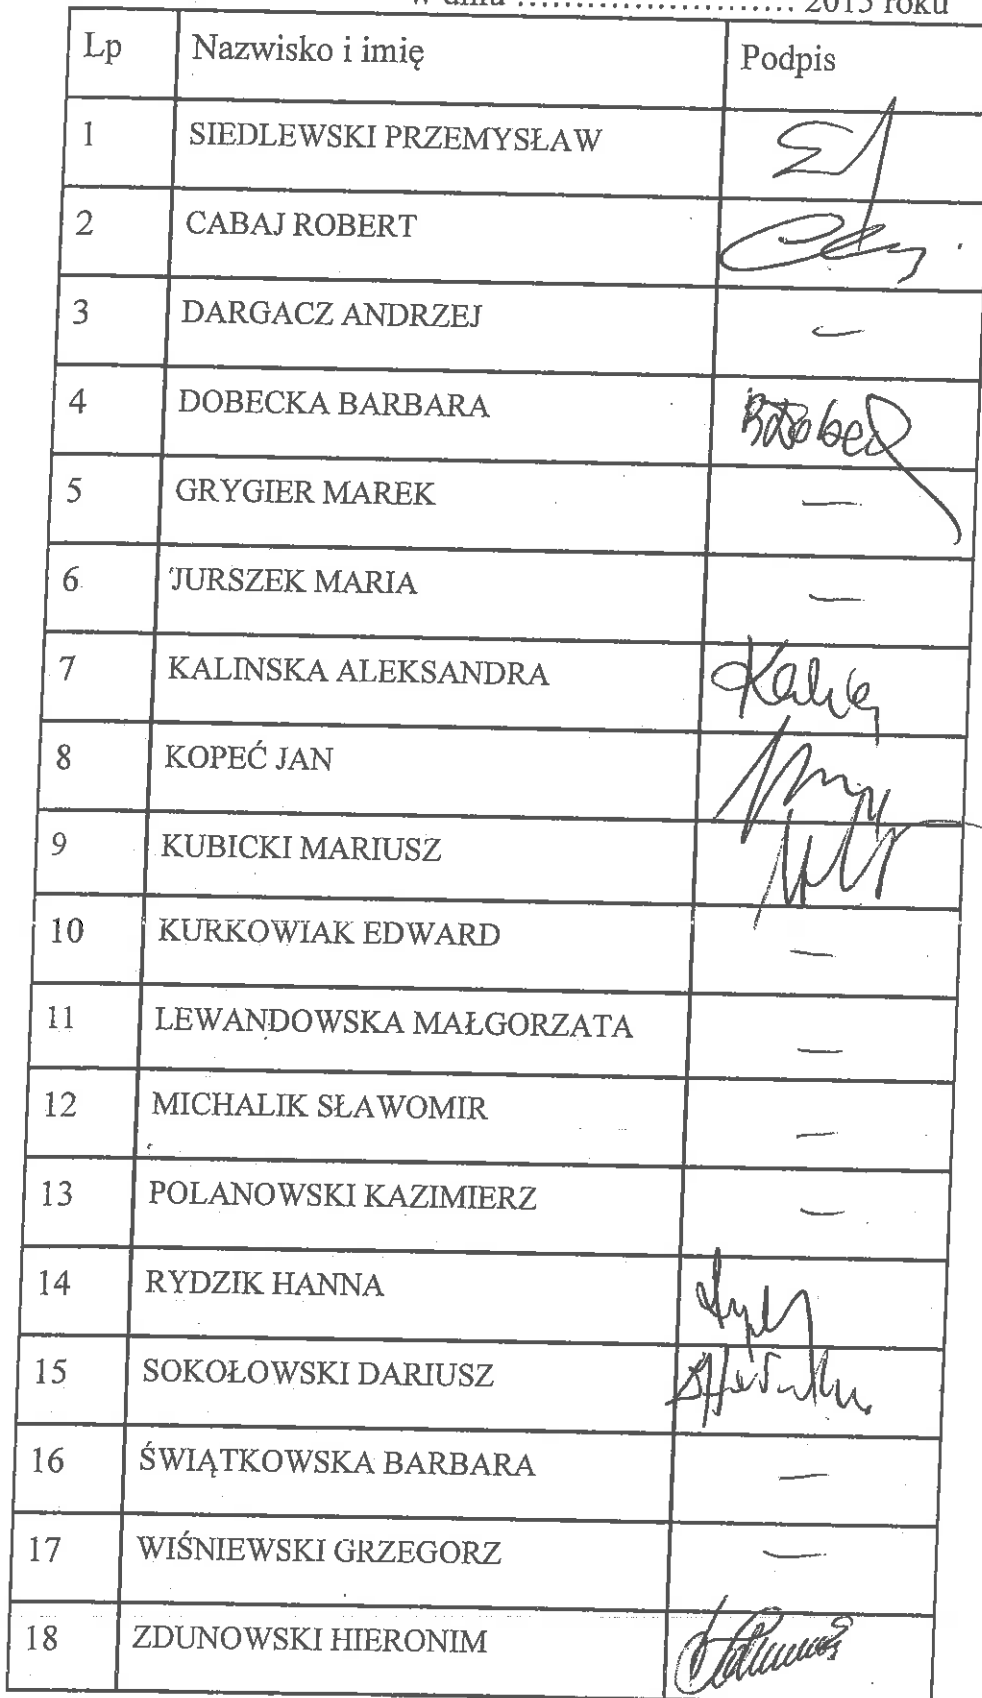 w dniu ........................ 2015 roku
Lp Nazwisko i imię Podpis
1 SIEDLEWSKI PRZEMYSŁAW
2 CABAJ ROBERT
3 DARGACZ ANDRZEJ —
4 DOBECKA BARBARA
5 GRYGIER MAREK —
6 JURSZEK MARIA —
7 KALINSKA ALEKSANDRA
8 KOPEĆ JAN
9 KUBICKI MARIUSZ
10 KURKOWIAK EDWARD —
11 LEWANDOWSKA MAŁGORZATA —
12 MICHALIK SŁAWOMIR —
13 POLANOWSKI KAZIMIERZ —
14 RYDZIK HANNA
15 SOKOŁOWSKI DARIUSZ
16 ŚWIĄTKOWSKA BARBARA —
17 WIŚNIEWSKI GRZEGORZ —
18 ZDUNOWSKI HIERONIM